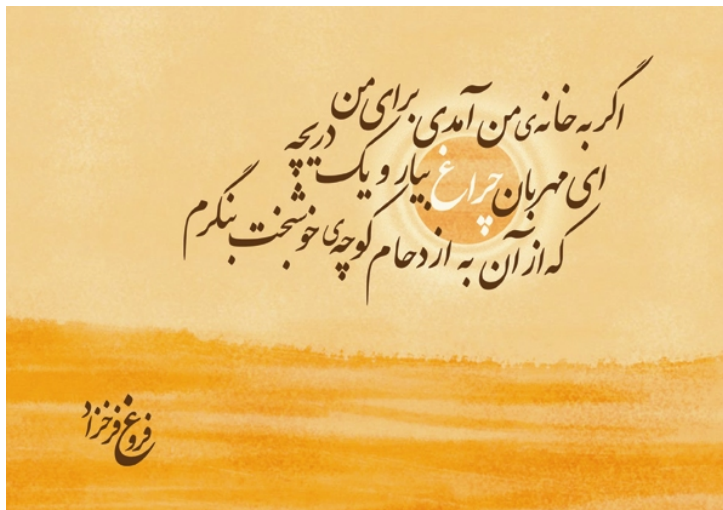 اگر به خانه‌ی من آمدی برای من
ای مهربان چراغ بیار و یک دریچه
که از آن به ازدحام کوچه‌ی خوشبخت بنگرم
فروغ فرخزاد